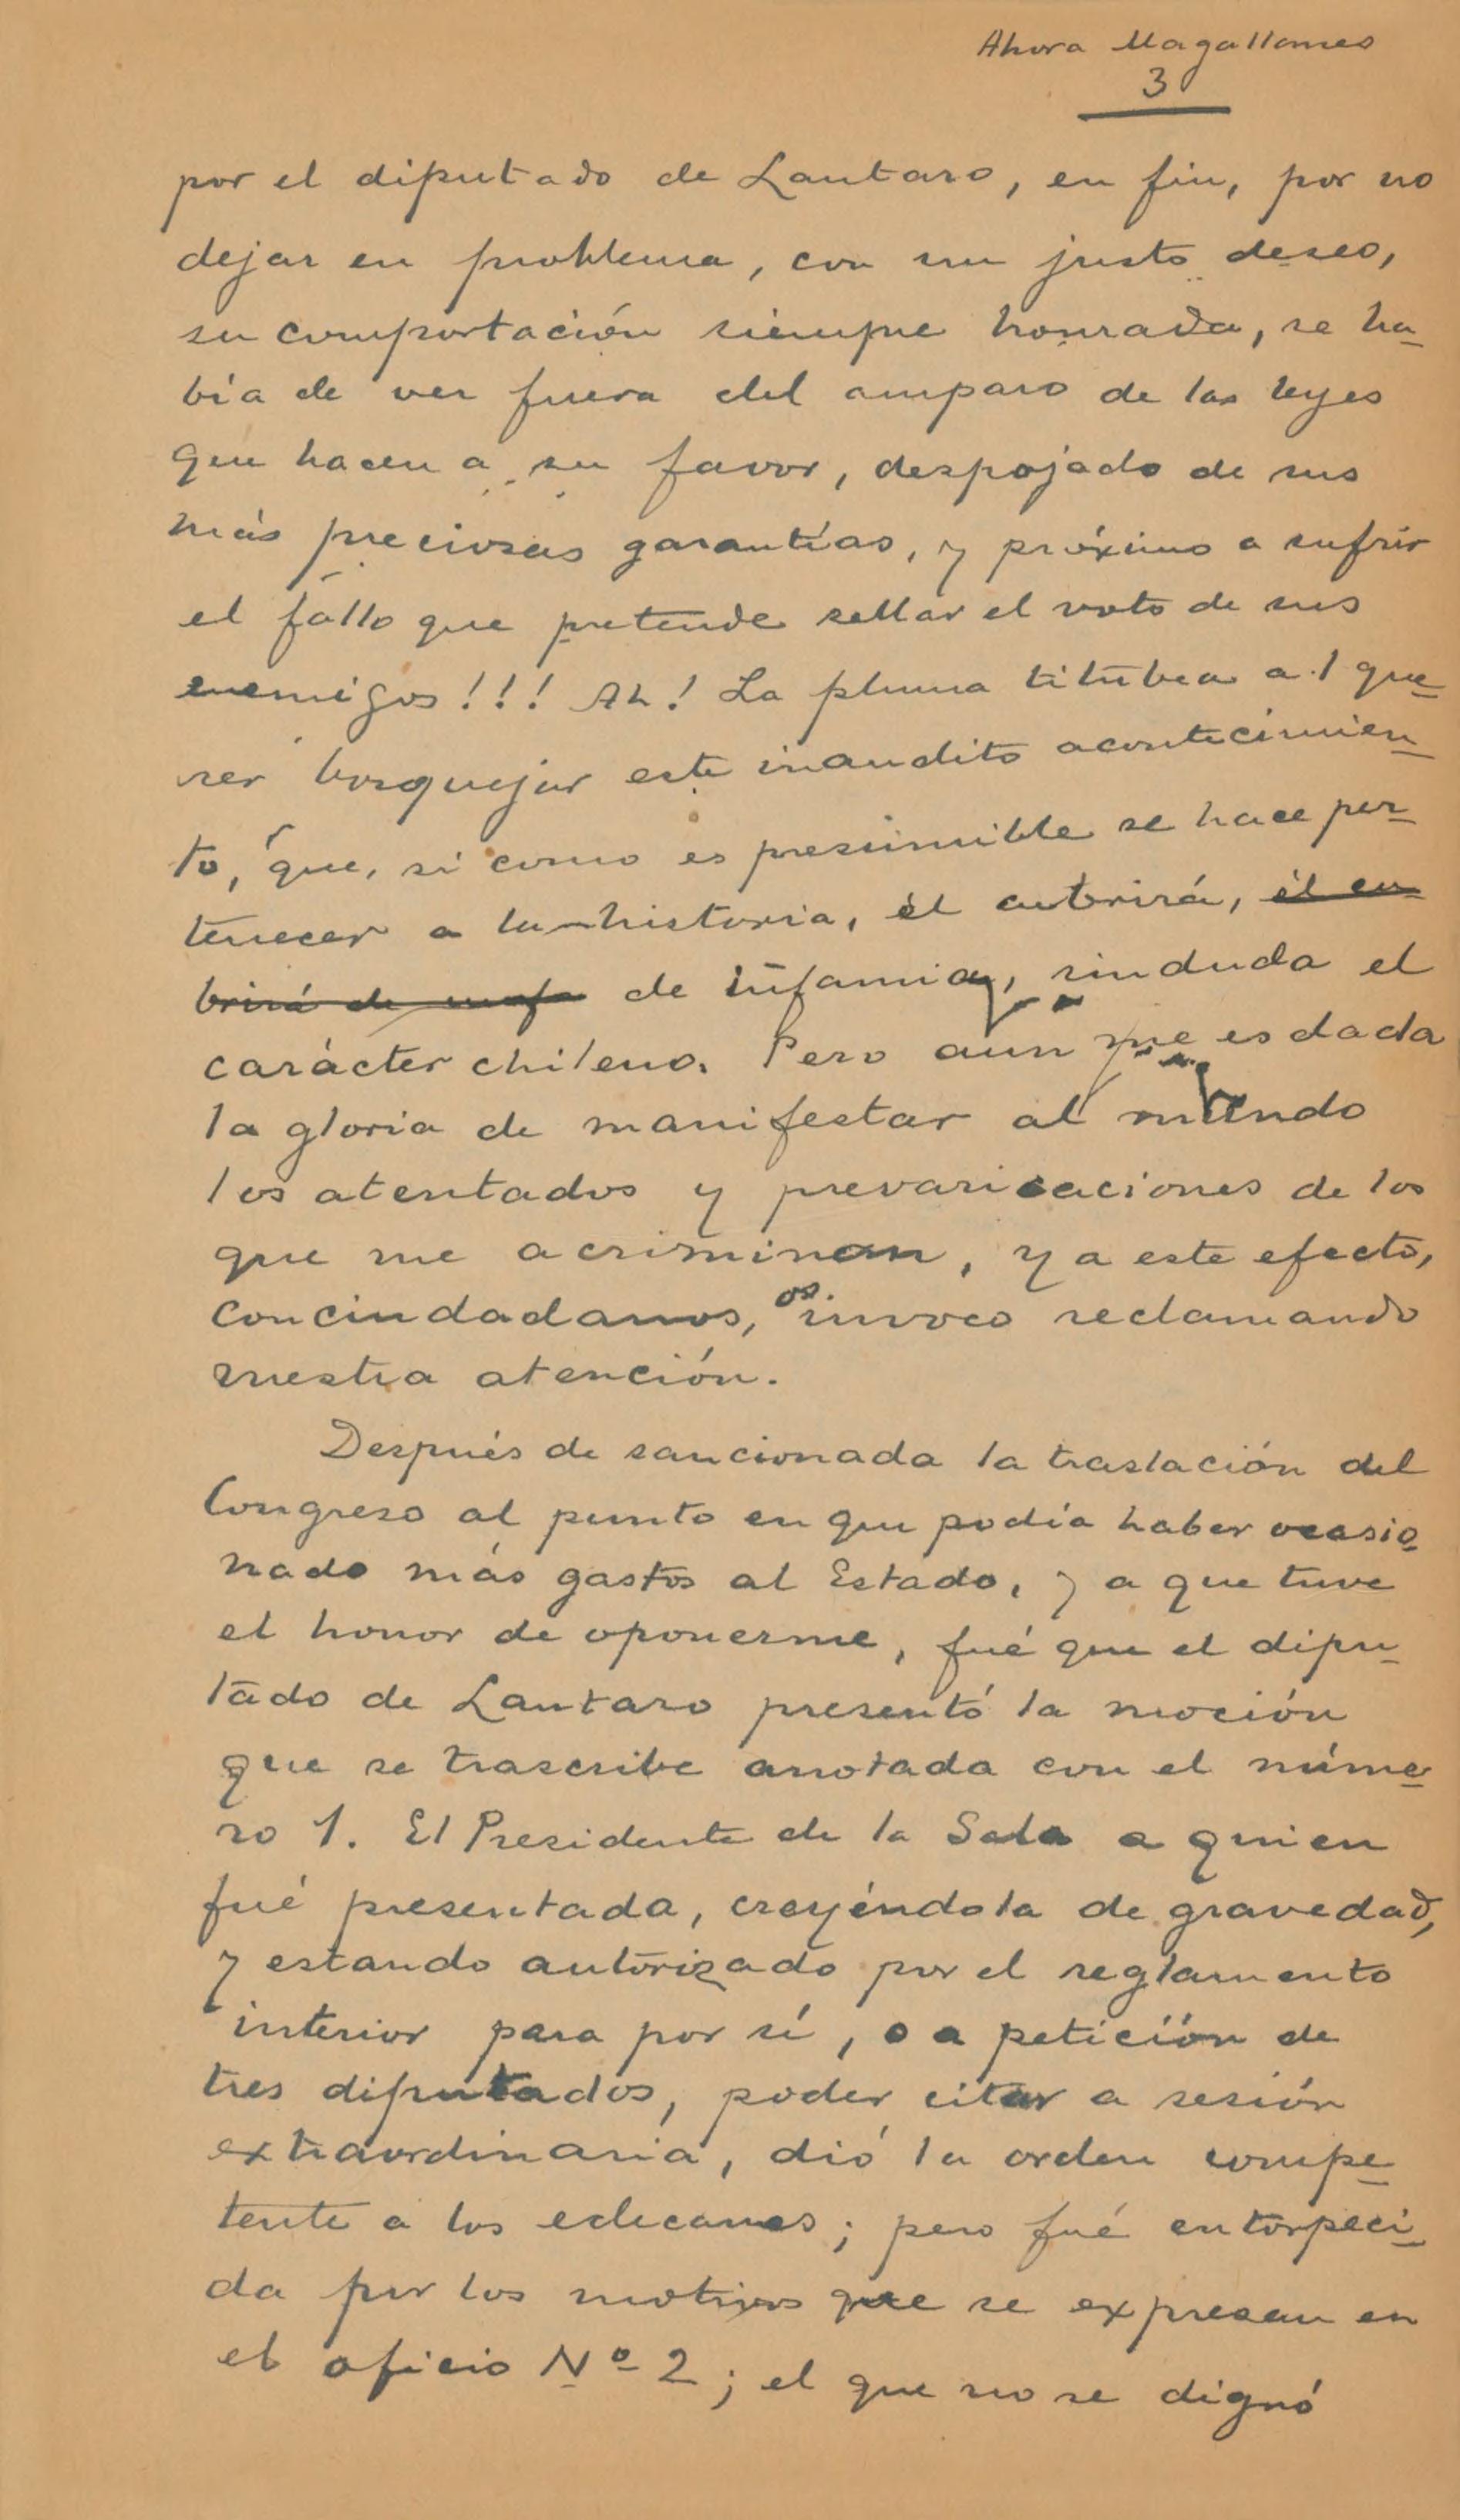 Ahora Magallanes
3
por el diputado de Lautaro, en fin, por no
dejar en problema, con un justo deseo,
su comportación siempre honrada, se ha-
bía de ver fuera del amparo de las leyes
que hacen a su favor, despojado de sus
más preciosas garantías, y próximo a sufrir
el fallo que pretende sellar el voto de sus
enemigos!!! Ah! La pluma titubea al que-
rer bosquejar este inaudito acontecimien-
to, que, si como es presumible se hace per-
tenecer a la historia, él cubrirá, él cu-
brirá de infa de infamia, sin duda el
carácter chileno. Pero aún me es dada
la gloria de manifestar al mundo
los atentados y prevaricaciones de los
que me acriminan, y a este efecto,
conciudadanos, os invoco reclamando
vuestra atención.
Después de sancionada la traslación del
Congreso al punto en que podía haber ocasio-
nado más gastos al Estado, y a que tuve
el honor de oponerme, fué que el dipu-
tado de Lautaro presentó la moción
que se trascribe anotada con el núme-
ro 1. El Presidente de la Sala a quien
fué presentada, creyéndola de gravedad,
y estando autorizado por el reglamento
interior para por sí, o a petición de
tres diputados, poder citar a sesión
extraordinaria, dió la orden compe-
tente a los edecanes; pero fué entorpeci-
da por los motivos que se expresan en
el oficio Nº 2; el que no se dignó